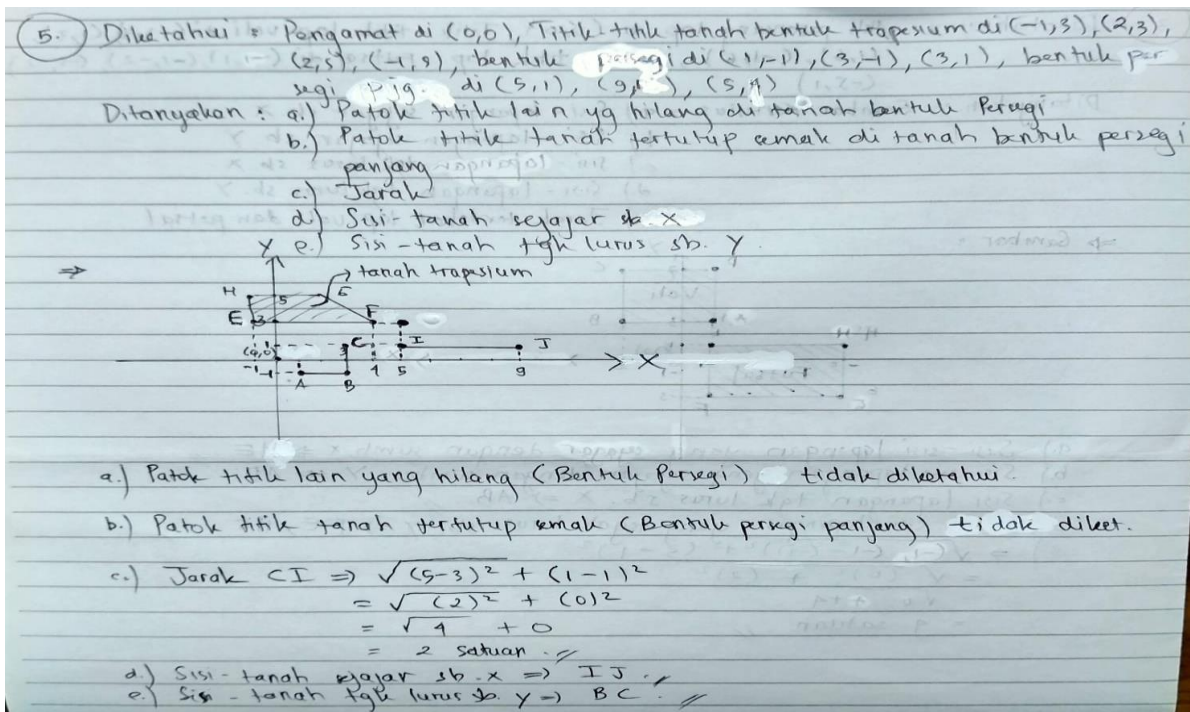 5. Diketahui : Pengamat di (0,0), Titik-titik tanah bentuk trapesium di (-1,3), (2,3),
(2,5), (-1,5), bentuk persegi di (1,-1), (3,-1), (3,1), bentuk per
segi pjg. di (5,1), (9, ), (5,4)
Ditanyakan : a.) Patok titik lain yg hilang di tanah bentuk Persegi
b.) Patok titik tanah tertutup semak di tanah bentuk persegi
panjang
c.) Jarak
d.) Sisi-tanah sejajar sb. X
e.) Sisi-tanah tgk lurus sb. Y
⇒ Y tanah trapesium
H 5 G
E 3 F
(0,0) 1 C I J
-1 -1 3 4 5 9 X
A B
a.) Patok titik lain yang hilang (Bentuk Persegi) tidak diketahui.
b.) Patok titik tanah tertutup semak (Bentuk persegi panjang) tidak diket.
c.) Jarak CI ⇒ √(5-3)² + (1-1)²
= √(2)² + (0)²
= √4 + 0
= 2 satuan.
d.) Sisi-tanah sejajar sb. x ⇒ IJ.
e.) Sisi-tanah tgk lurus sb. y ⇒ BC.